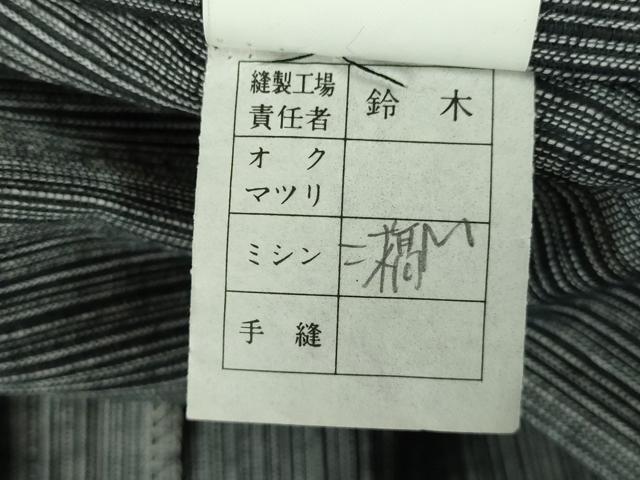 縫製工場
責任者
鈴 木
オ ク
マツリ
ミシン
手 縫